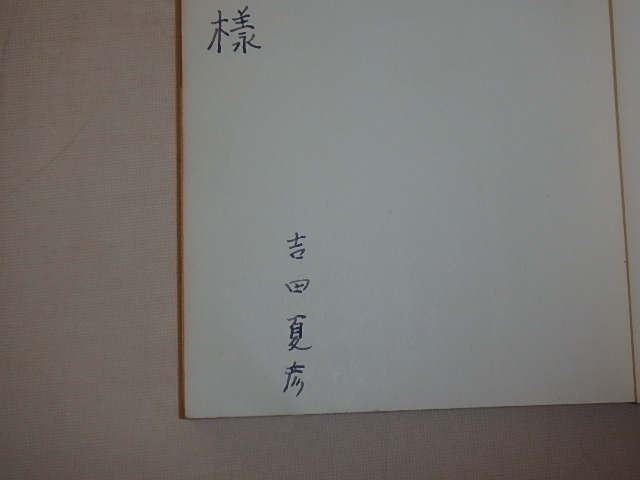 様
吉田夏彦